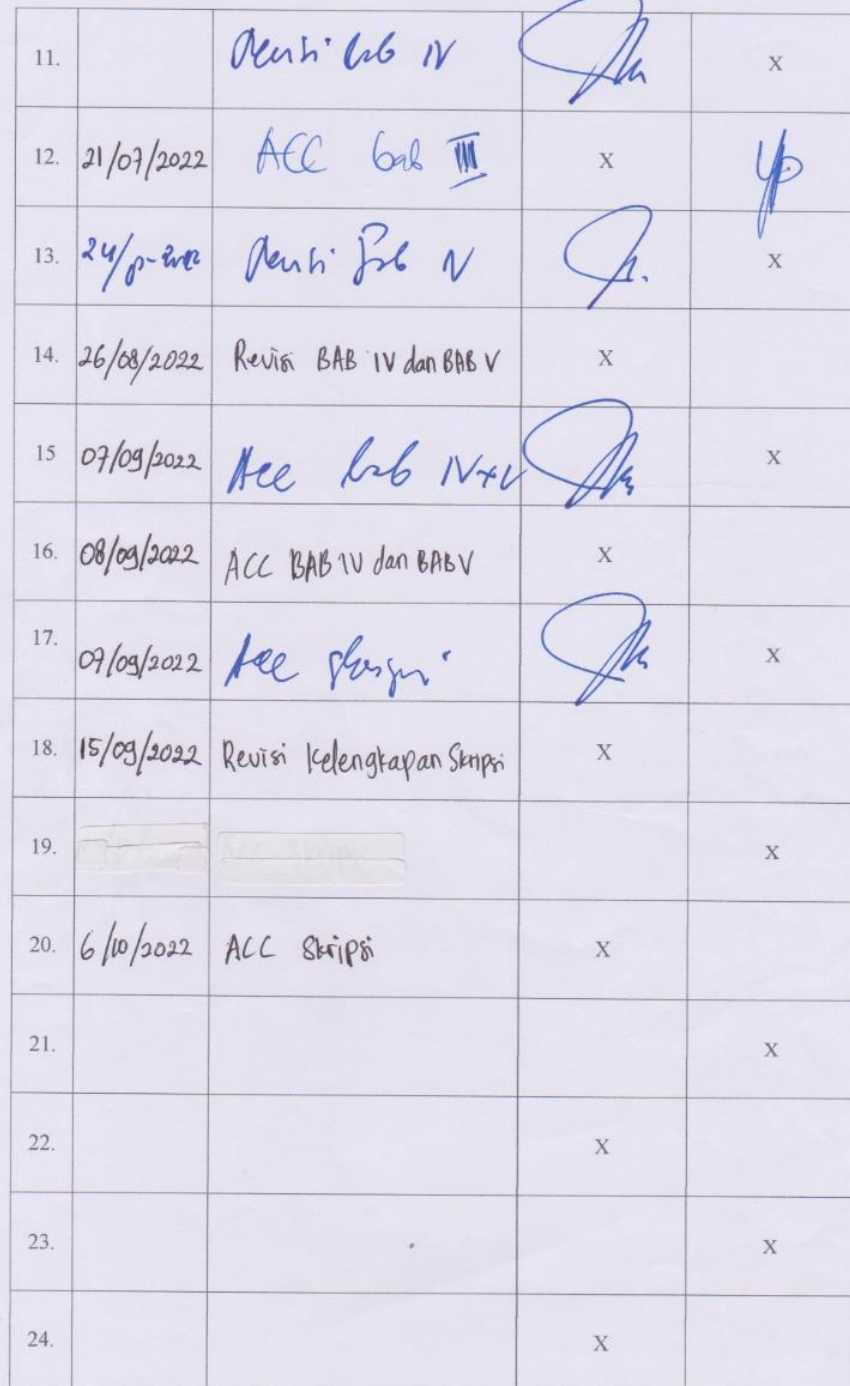 11. Revisi bab IV X
12. 21/07/2022 ACC bab III X
13. Revisi Bab IV X
14. 26/08/2022 Revisi BAB IV dan BAB V X
15 07/09/2022 Acc bab IV+V X
16. 08/09/2022 ACC BAB IV dan BAB V X
17. 07/09/2022 Acc X
18. 15/09/2022 Revisi Kelengkapan Skripsi X
19. X
20. 6/10/2022 ACC Skripsi X
21. X
22. X
23. X
24. X